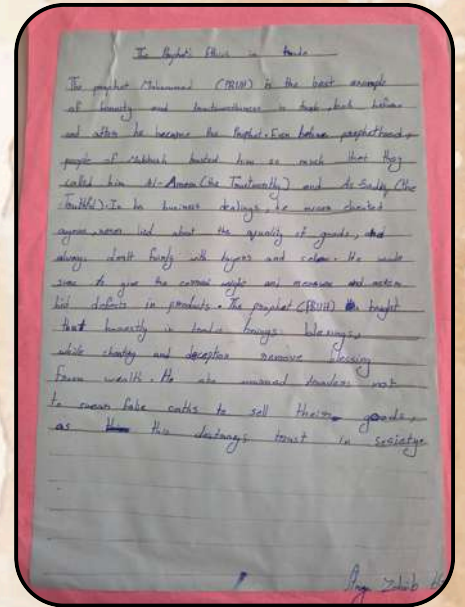 The Prophet's Ethics in trade
The prophet Muhammad (PBUH) is the best example
of honesty and trustworthiness in trade, both before
and after he became the Prophet. Even before prophethood,
people of Makkah trusted him so much that they
called him Al-Ameen (the Trustworthy) and As Sadiq (the
Truthful). In his business dealings, he never cheated
anyone, never lied about the quality of goods, and
always dealt fairly with buyers and sellers. He made
sure to give the correct weight and measure and never
hid defects in products. The prophet (PBUH) taught
that honestly in trade brings blessings,
while cheating and deception remove blessing
from wealth. He also warned traders not
to swear false oaths to sell their goods,
as this destroys trust in society
Zohaib